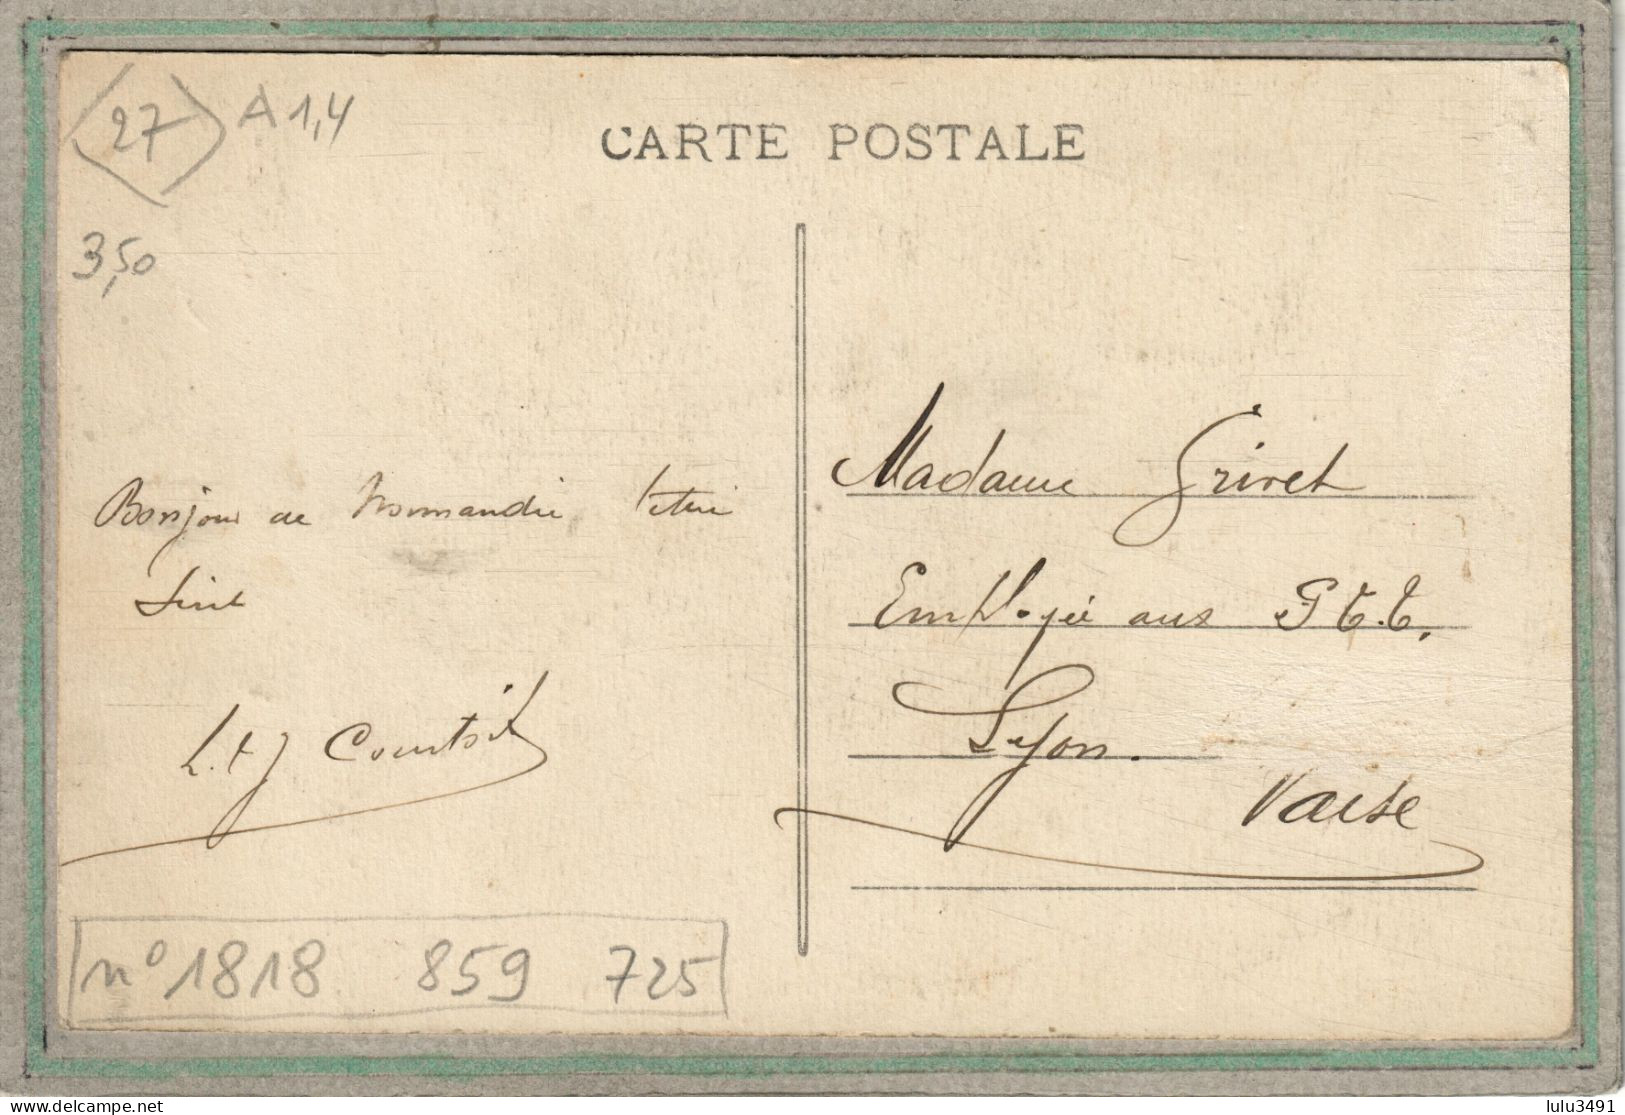 27 A 1,4
CARTE POSTALE
3,50
Bonjour de Normandie
L. et J Courtois
Madame Grivet
Employée aux P.T.T.
Lyon.
Vaise
n° 1818 859 725
www.delcampe.net
lulu3491